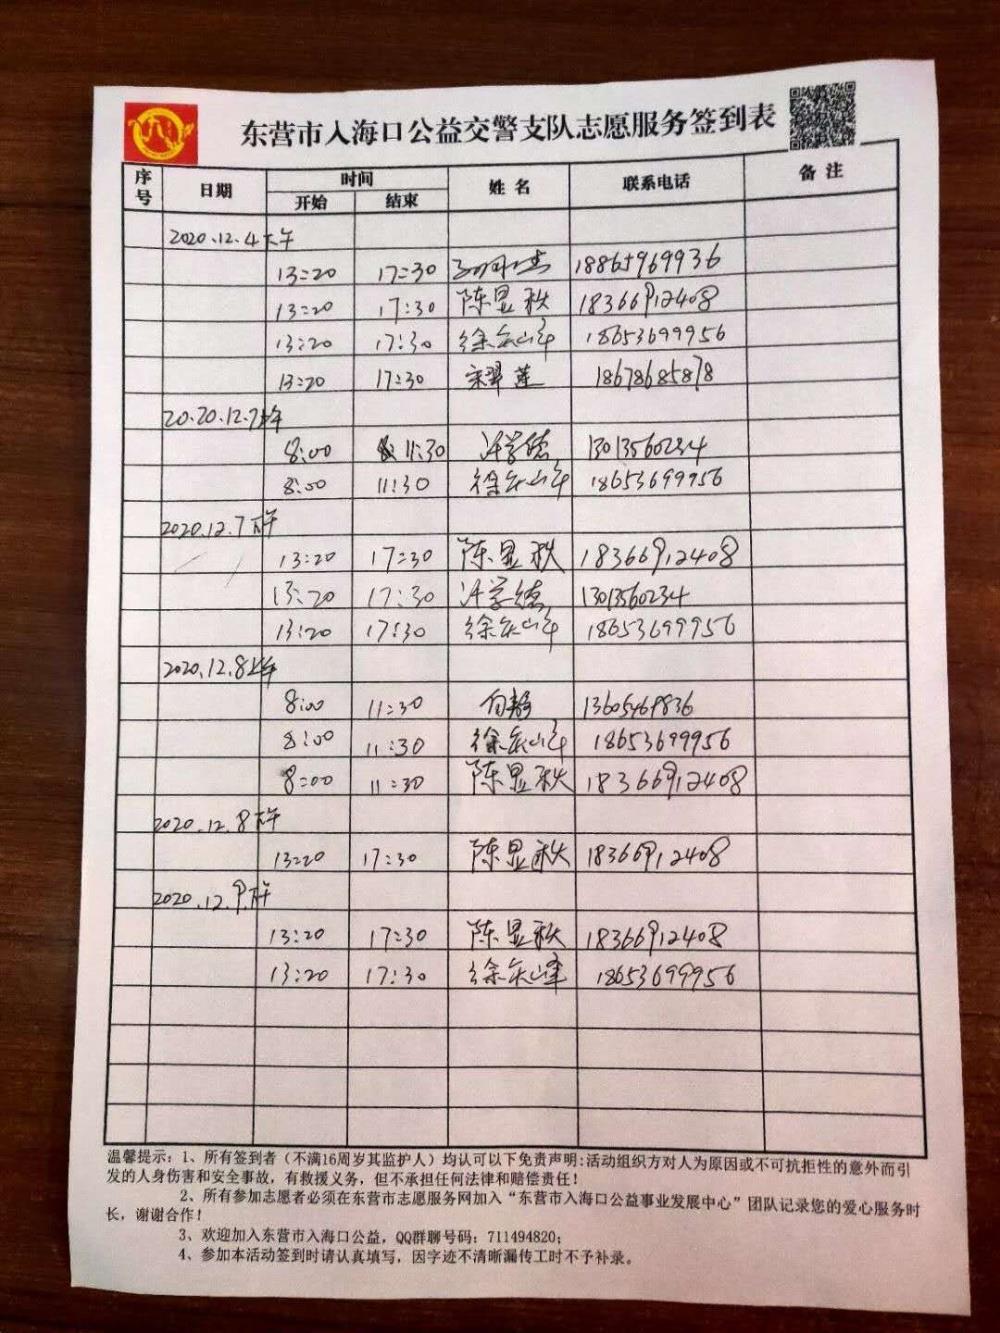 东营市入海口公益交警支队志愿服务签到表
序号 日期 时间 姓名 联系电话 备注
开始 结束
2020.12.4下午
13:20 17:30 18865969936
13:20 17:30 陈显秋 18366912408
13:20 17:30 徐庆山峰 18653699956
13:20 17:30 宋翠莲 18678685878
20.20.12.7上午
8:00 11:30 许学德 13013560234
8:00 11:30 徐庆峰 18653699956
2020.12.7下午
13:20 17:30 陈显秋 18366912408
13:20 17:30 许学德 13013560234
13:20 17:30 徐庆峰 18653699956
2020.12.8上午
8:00 11:30 向静 13605469836
8:00 11:30 徐庆峰 18653699956
8:00 11:30 陈显秋 18366912408
2020.12.8下午
13:20 17:30 陈显秋 18366912408
2020.12.9.下午
13:20 17:30 陈显秋 18366912408
13:20 17:30 徐庆峰 18653699956
温馨提示：1、所有签到者（不满16周岁其监护人）均认可以下免责声明:活动组织方对人为原因或不可抗拒性的意外而引
发的人身伤害和安全事故，有救援义务，但不承担任何法律和赔偿责任！
2、所有参加志愿者必须在东营市志愿服务网加入“东营市入海口公益事业发展中心”团队记录您的爱心服务时
长，谢谢合作！
3、欢迎加入东营市入海口公益，QQ群聊号码：711494820；
4、参加本活动签到时请认真填写，因字迹不清晰漏传工时不予补录。